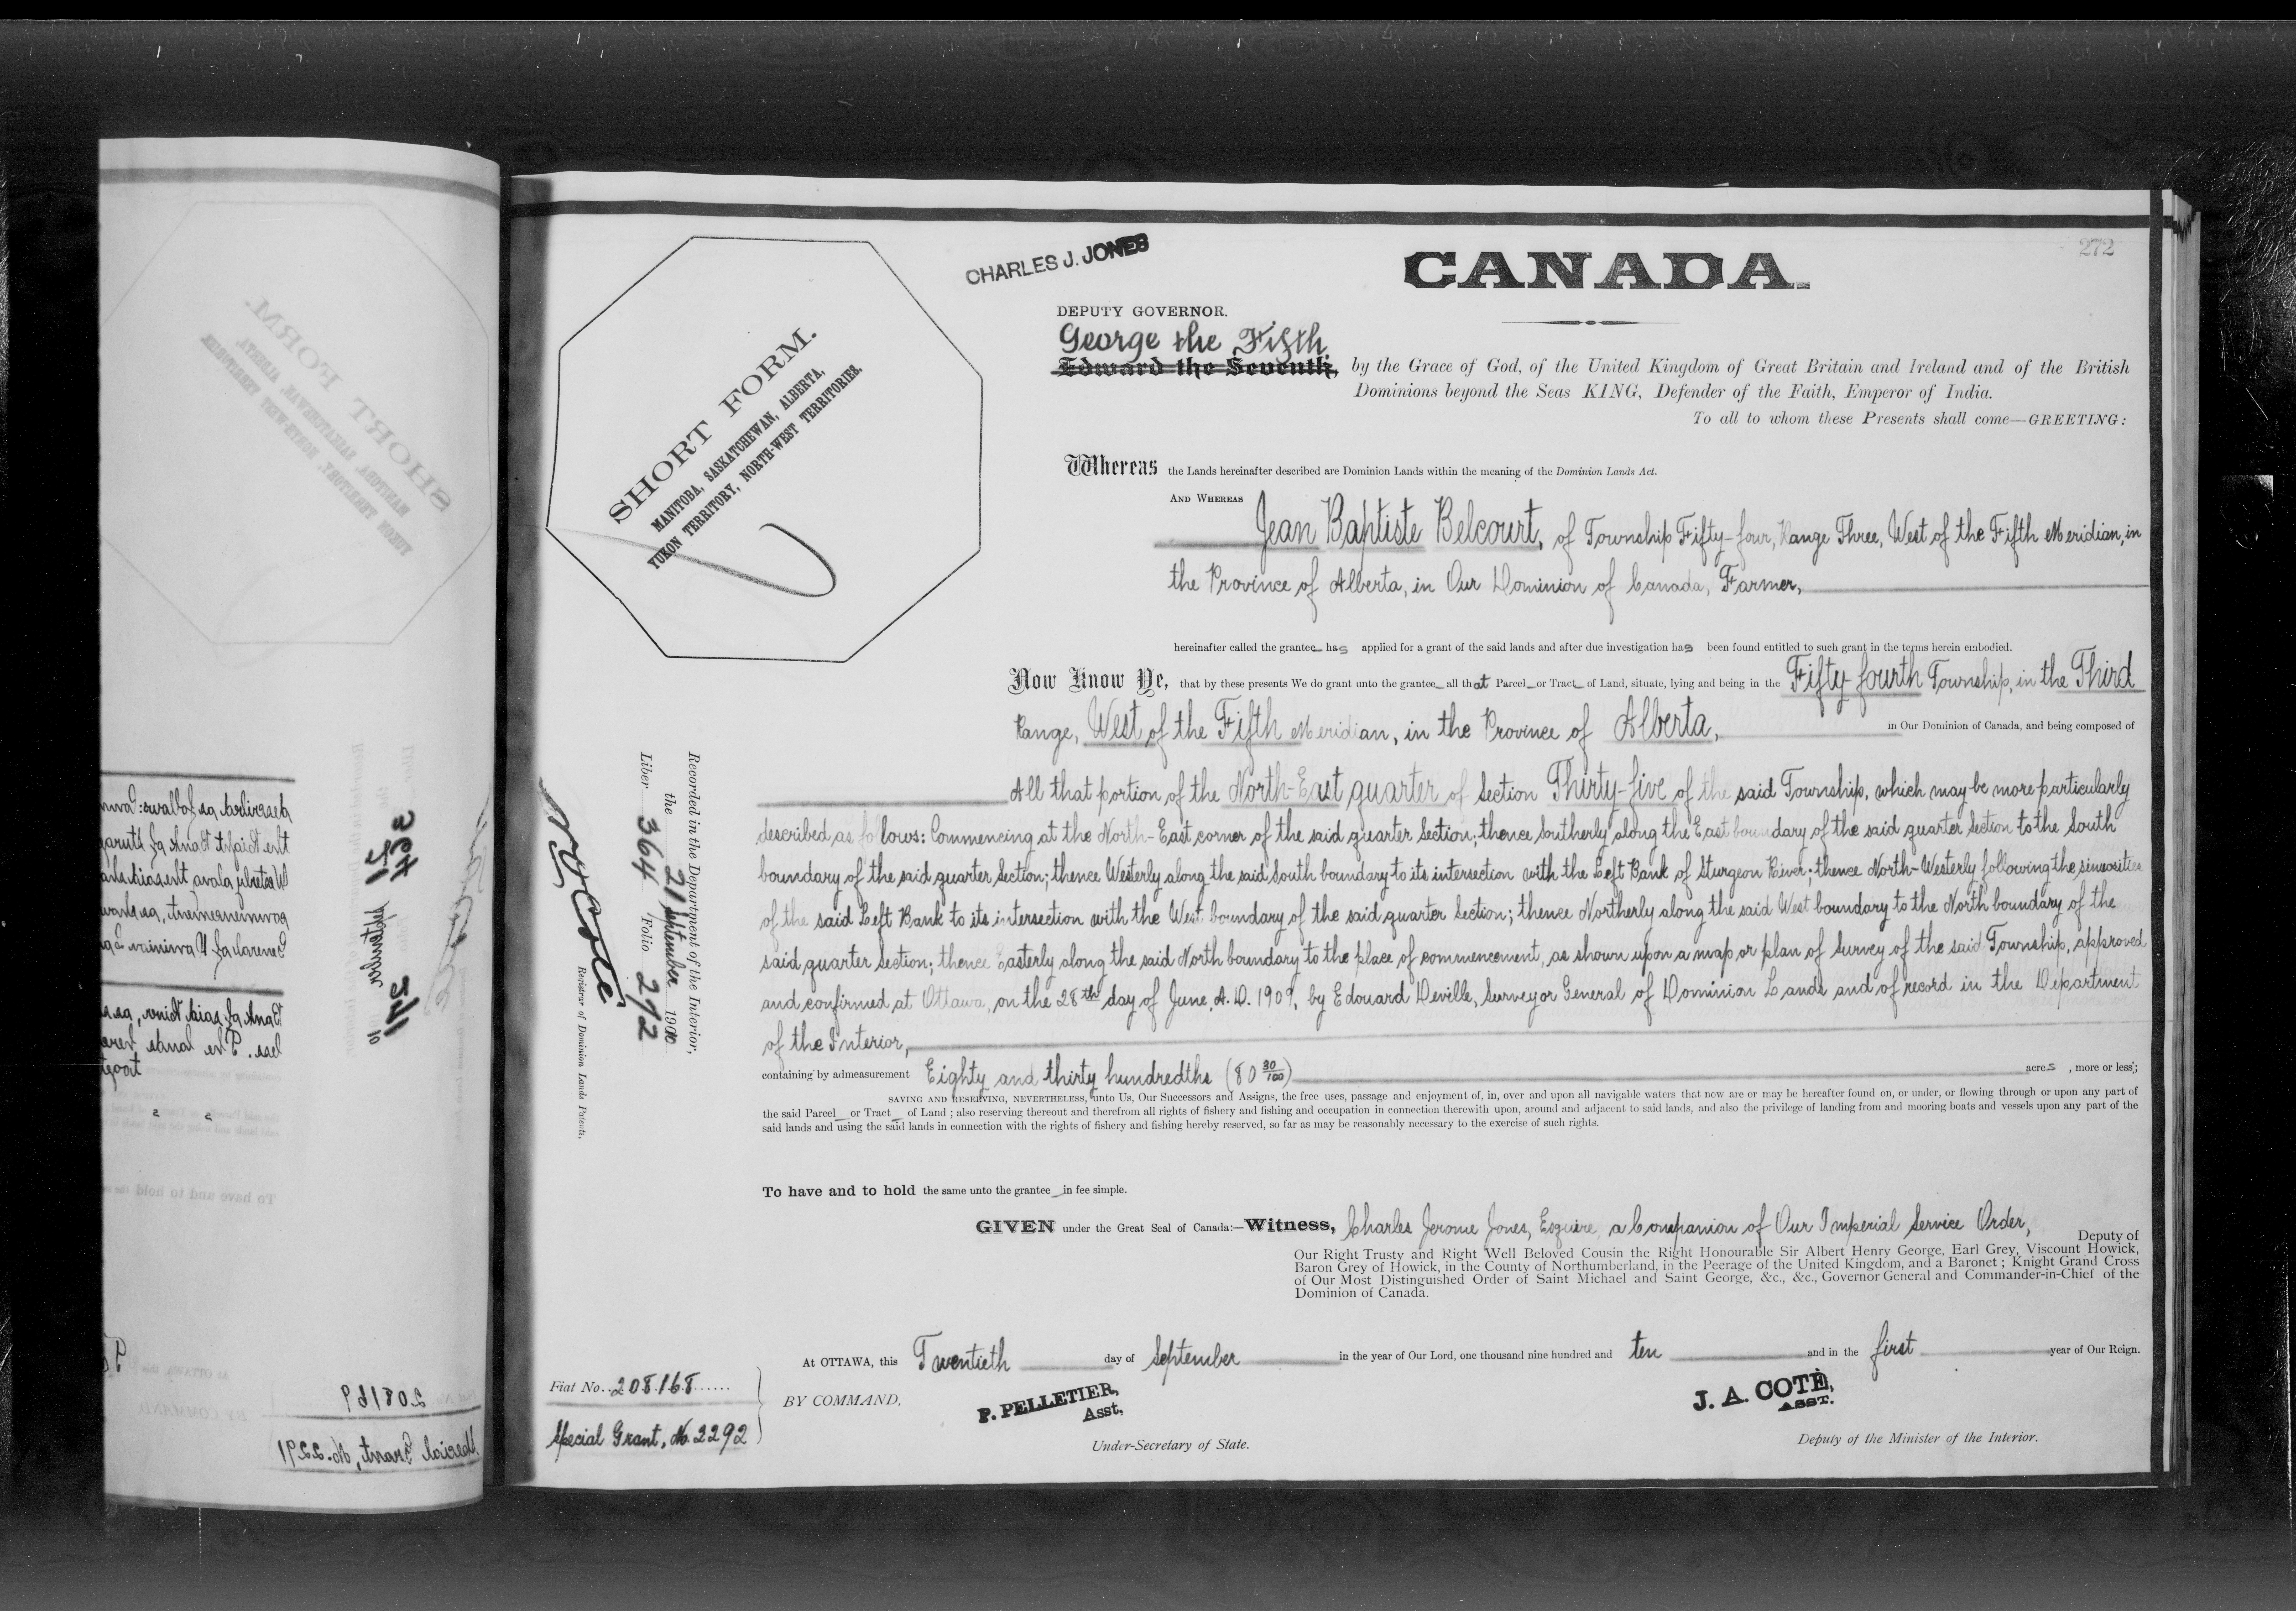 272
CHARLES J. JONES
CANADA.
DEPUTY GOVERNOR.
George the Fifth
Edward the Seventh, by the Grace of God, of the United Kingdom of Great Britain and Ireland and of the British
Dominions beyond the Seas KING, Defender of the Faith, Emperor of India.
To all to whom these Presents shall come—GREETING:
SHORT FORM.
MANITOBA, SASKATCHEWAN, ALBERTA,
YUKON TERRITORY, NORTH-WEST TERRITORIES.
Whereas the Lands hereinafter described are Dominion Lands within the meaning of the Dominion Lands Act.
AND WHEREAS
Jean Baptiste Belcourt, of Township Fifty-four, Range Three, West of the Fifth Meridian, in
the Province of Alberta, in Our Dominion of Canada, Farmer,
hereinafter called the grantee has applied for a grant of the said lands and after due investigation has been found entitled to such grant in the terms herein embodied.
Now Know Ye, that by these presents We do grant unto the grantee all that Parcel or Tract of Land, situate, lying and being in the Fifty-fourth Township, in the Third
Range, West of the Fifth Meridian, in the Province of Alberta, in Our Dominion of Canada, and being composed of
All that portion of the North-East quarter of Section Thirty-five of the said Township, which may be more particularly
described as follows: Commencing at the North-East corner of the said quarter Section; thence Southerly along the East boundary of the said quarter Section to the South
boundary of the said quarter Section; thence Westerly along the said South boundary to its intersection with the Left Bank of Sturgeon River; thence North-Westerly following the sinuosities
of the said Left Bank to its intersection with the West boundary of the said quarter Section; thence Northerly along the said West boundary to the North boundary of the
said quarter Section; thence Easterly along the said North boundary to the place of commencement, as shown upon a map or plan of Survey of the said Township, approved
and confirmed at Ottawa, on the 28th day of June, A.D. 1909, by Edouard Deville, Surveyor General of Dominion Lands and of record in the Department
of the Interior,
containing by admeasurement Eighty and thirty hundredths (80 30/100) acres, more or less;
SAVING AND RESERVING, NEVERTHELESS, unto Us, Our Successors and Assigns, the free uses, passage and enjoyment of, in, over and upon all navigable waters that now are or may be hereafter found on, or under, or flowing through or upon any part of
the said Parcel or Tract of Land; also reserving thereout and therefrom all rights of fishery and fishing and occupation in connection therewith upon, around and adjacent to said lands, and also the privilege of landing from and mooring boats and vessels upon any part of the
said lands and using the said lands in connection with the rights of fishery and fishing hereby reserved, so far as may be reasonably necessary to the exercise of such rights.
To have and to hold the same unto the grantee in fee simple.
GIVEN under the Great Seal of Canada:—Witness, Charles Jerome Jones, Esquire, a Companion of Our Imperial Service Order, Deputy of
Our Right Trusty and Right Well Beloved Cousin the Right Honourable Sir Albert Henry George, Earl Grey, Viscount Howick,
Baron Grey of Howick, in the County of Northumberland, in the Peerage of the United Kingdom, and a Baronet; Knight Grand Cross
of Our Most Distinguished Order of Saint Michael and Saint George, &c., &c., Governor General and Commander-in-Chief of the
Dominion of Canada.
At OTTAWA, this Twentieth day of September in the year of Our Lord, one thousand nine hundred and ten and in the first year of Our Reign.
BY COMMAND,
P. PELLETIER,
Asst.
Under-Secretary of State.
J. A. COTÉ,
ASST.
Deputy of the Minister of the Interior.
Fiat No. 208168
Special Grant, No. 2292
Recorded in the Department of the Interior,
the 21 September 1910
Liber 364 Folio 272
N. O. Coté
Registrar of Dominion Lands Patents.